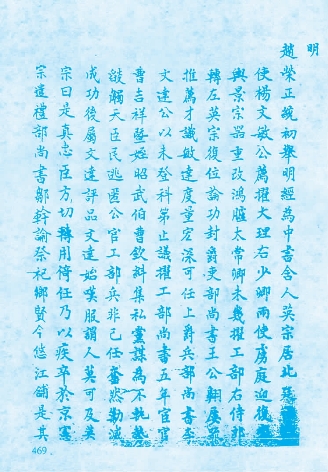 明
趙榮正統初舉明經為中書舍人英宗居北
使楊文敏公薦擢大理右少卿兩使虜庭迎復
與景宗器重改鴻臚太常卿未幾擢工部右侍
轉左英宗復位論功封爵吏部尚書王公翱
推薦才識敏達度量宏深可任上爵兵部尚書
文達公以未登科第止議擢工部尚書五年宦官
曹吉祥暨姪昭武伯曹欽糾集私黨謀為不軌
觸天臣民逃匿公官工部兵非己任奮然勦滅
成功後屬文達評品文達始嘆服謂人莫可及英
宗曰是真忠臣方切轉用倚任乃以疾卒於京
宗遣禮部尚書鄒幹諭祭祀鄉賢今悠江舖是其
469